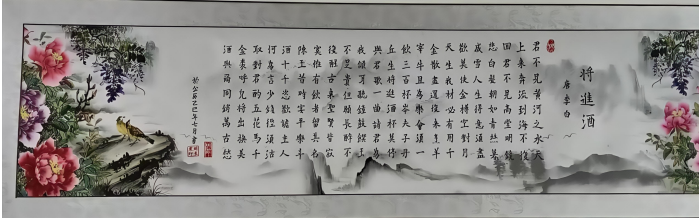 將進酒
唐李白
君不見黃河之水天
上來奔流到海不復
回君不見高堂明鏡
悲白髮朝如青絲暮
成雪人生得意須盡
歡莫使金樽空對月
天生我材必有用千
金散盡還復來烹羊
宰牛且為樂會須一
飲三百杯岑夫子丹
丘生將進酒杯莫停
與君歌一曲請君為
我傾耳聽鐘鼓饌玉
不足貴但願長醉不
復醒古來聖賢皆寂
寞惟有飲者留其名
陳王昔時宴平樂斗
酒十千恣歡謔主人
何為言少錢徑須沽
取對君酌五花馬千
金裘呼兒將出換美
酒與爾同銷萬古愁
於公元乙巳年七月書